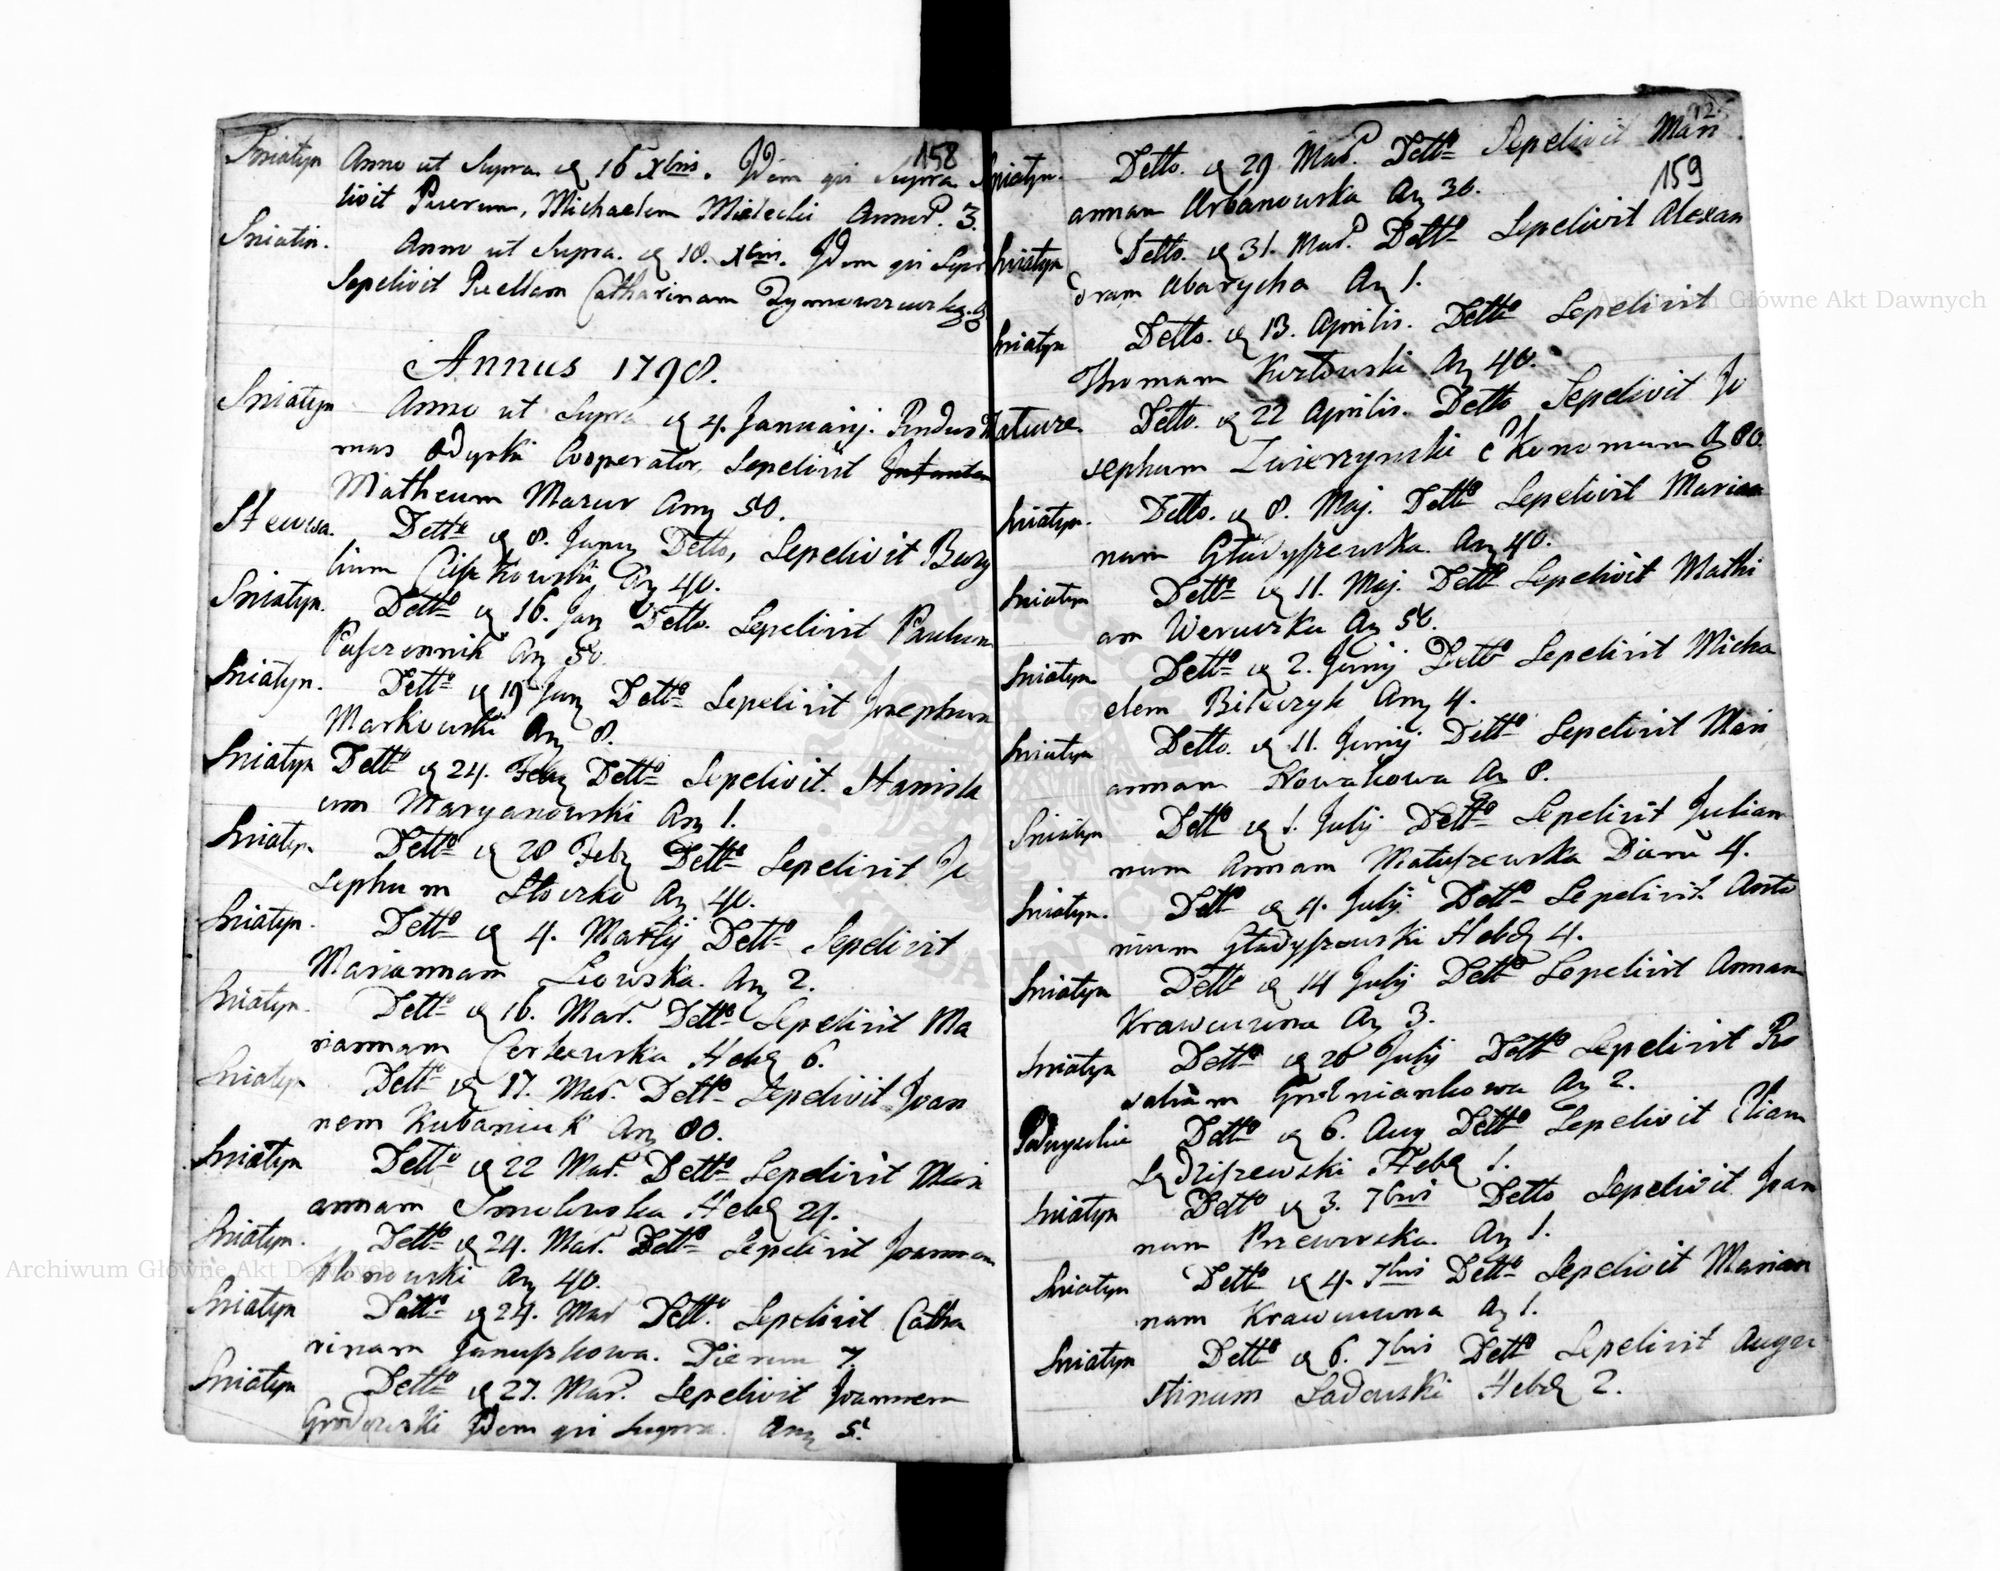 158
Sniatyn Anno ut Supra die 16 Xbris. Idem qui Supra Sepe
livit Puerum, Michaelem Mielecki Annor. 3.
Sniatin. Anno ut Supra. die 18. Xbris. Idem qui Supra
Sepelivit Puellam Catharinam
Annus 1798.
Sniatyn Anno ut Supra die 4. Januarij.
mus Odyski Cooperator, Sepelivit
Matheum Mazur Ann 50.
Stecowa. Detto die 8. Janu Detto, Sepelivit
lium An 40.
Sniatyn. Detto die 16. Jan Detto. Sepelivit Paulum
An 50.
Sniatyn. Detto die 19 Jan Detto Sepelivit Josephum
Markowski An 8.
Sniatyn Detto die 24. Feb Detto Sepelivit. Stanisla
um Maryanowski An 1.
Sniatyn Detto die 28 Feb Detto Sepelivit Jo
sephum An 40.
Sniatyn. Detto die 4. Martij Detto Sepelivit
Mariannam An 2.
Sniatyn. Detto die 16. Mar. Detto Sepelivit Ma
riannam Hebd 6.
Sniatyn Detto die 17. Mar. Detto Sepelivit Joan
nem Kubaniuk An 80.
Sniatyn Detto die 22 Mar. Detto Sepelivit Mari
annam Hebd 29.
Sniatyn. Detto die 24. Mar. Detto Sepelivit Joannem
An 40.
Sniatyn Detto die 24. Mar Detto. Sepelivit Catha
rinam Januszkowa. Dierum 7.
Sniatyn Detto die 27. Mar. Sepelivit Joannem
Grodowski Idem qui Supra. Ann 5.
159
Sniatyn. Detto. die 29 Mar. Detto Sepelivit Mari
annam Urbanowska An 36.
Sniatyn Detto. die 31. Mar. Detto Sepelivit Alexan
dram Abarycha An 1.
Sniatyn Detto. die 13. Aprilis. Detto Sepelivit
Thomam Kozłowski An 40.
Detto. die 22 Aprilis. Detto Sepelivit Jo
sephum Zwierzynski 80.
Sniatyn. Detto. die 8. Maj. Detto Sepelivit Marian
nam Gładyszewska. An 40.
Sniatyn Detto die 11. Maj. Detto Sepelivit Mathi
am An 50.
Sniatyn Detto die 2. Junij Detto Sepelivit Micha
elem Ann 4.
Sniatyn Detto. die 11. Junij Detto Sepelivit Mari
annam Nowakowa An 8.
Sniatyn Detto die 1. Julij Detto Sepelivit Julian
nam Annam Matuszewska Dierū 4.
Sniatyn. Detto die 4. Julij Detto Sepelivit. Anto
nium Gładyszewski Hebd 4.
Sniatyn Detto die 14 Julij Detto Sepelivit Annam
Krawcuwna An 3.
Sniatyn Detto die 26 Julij Detto Sepelivit Ro
saliam An 2.
Podwysokie Detto die 6. Aug Detto Sepelivit Eliam
Hebd 1.
Sniatyn Detto die 3. 7bris Detto Sepelivit Joan
nam An 1.
Sniatyn Detto die 4. 7bris Detto Sepelivit Marian
nam Krawcuwna An 1.
Sniatyn Detto die 6. 7bris Detto Sepelivit Augu
stinum Sadowski Hebd 2.
Archiwum Główne Akt Dawnych
Archiwum Główne Akt Dawnych